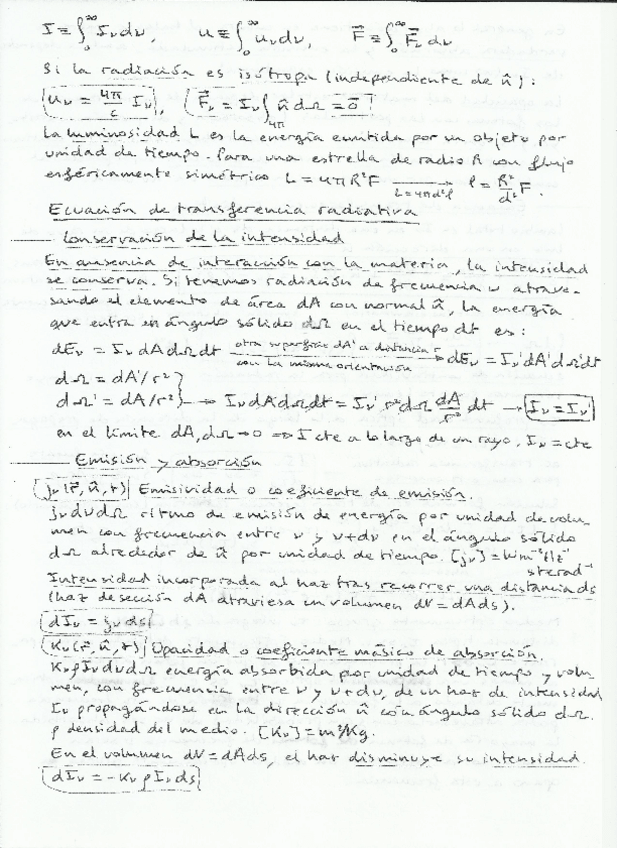 I ≡ ∫₀^∞ I_ν dν,    u ≡ ∫₀^∞ u_ν dν,    F⃗ ≡ ∫₀^∞ F⃗_ν dν
Si la radiación es isótropa (independiente de n̂):
u_ν = 4π/c I_ν,    F⃗_ν = I_ν ∫_4π n̂ dΩ = 0⃗
La luminosidad L es la energía emitida por un objeto por
unidad de tiempo. Para una estrella de radio R con flujo
esféricamente simétrico L = 4πR²F → (L=4πd²l) l = R²/d² F.
Ecuación de transferencia radiativa
Conservación de la intensidad
En ausencia de interacción con la materia, la intensidad
se conserva. Si tenemos radiación de frecuencia ν atrave-
sando el elemento de área dA con normal n̂, la energía
que entra en ángulo sólido dΩ en el tiempo dt es:
dE_ν = I_ν dA dΩ dt → (otra superficie dA' a distancia r con la misma orientación) dE_ν = I_ν' dA' dΩ' dt
dΩ = dA'/r²
dΩ' = dA/r² → I_ν dA dΩ dt = I_ν' r² dΩ dA/r² dt → I_ν = I_ν'
en el límite dA, dΩ → 0 ⇒ I cte a lo largo de un rayo. I_ν = cte
Emisión y absorción
j_ν(r⃗, n̂, t) Emisividad o coeficiente de emisión.
j_ν dν dΩ ritmo de emisión de energía por unidad de volu-
men con frecuencia entre ν y ν+dν en el ángulo sólido
dΩ alrededor de n̂ por unidad de tiempo. [j_ν] = W m⁻³ Hz⁻¹
sterad⁻¹
Intensidad incorporada al haz tras recorrer una distancia ds
(haz de sección dA atraviesa un volumen dV = dA ds).
dI_ν = j_ν ds
K_ν(r⃗, n̂, t) Opacidad o coeficiente másico de absorción.
K_ν ρ I_ν dν dΩ energía absorbida por unidad de tiempo y volu-
men, con frecuencia entre ν y ν+dν, de un haz de intensidad
I_ν propagándose en la dirección n̂ con ángulo sólido dΩ.
ρ densidad del medio. [K_ν] = m²/Kg.
En el volumen dV = dA ds, el haz disminuye su intensidad.
dI_ν = -K_ν ρ I_ν ds